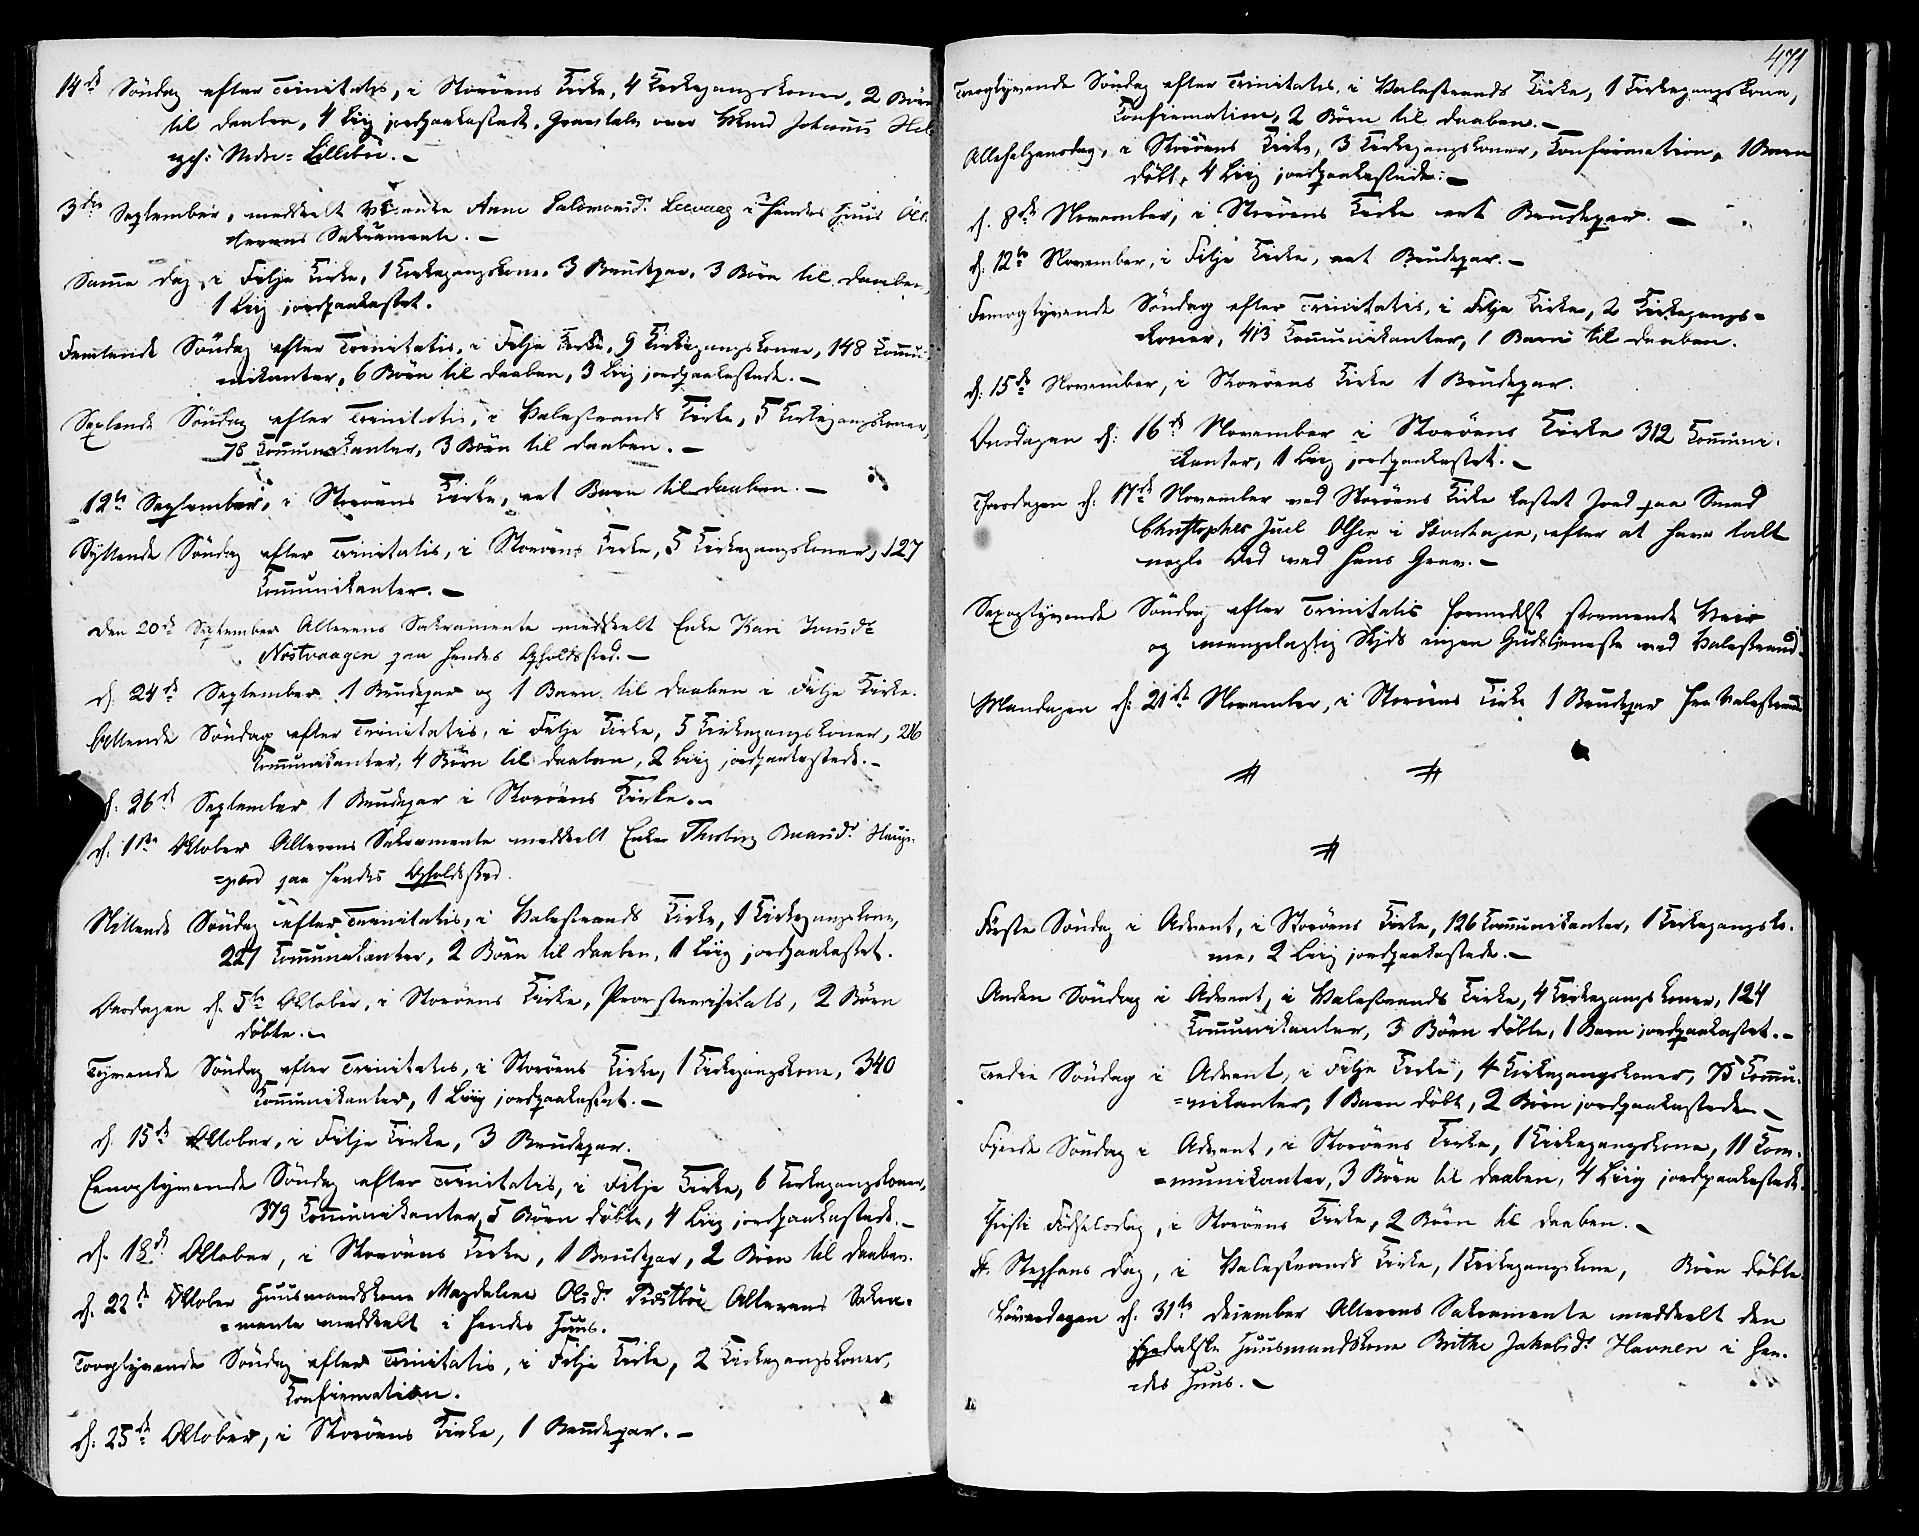 14de Söndag efter Trinitatis, i Storöens Kirke, 4 Kirkegangskoner, 2 Börn
til Daaben, 4 Liig jordpaakastede. Gravtale over
Nedre= Lilleböe. –
3die September, meddeelt Anne Salomonsd. Leevaag i hendes Huus Al-
terens Sakramente. –
Samme Dag i Fitje Kirke, 1 Kirkegangskone, 3 Brudepar, 3 Börn til Daaben,
1 Liig jordpaakastet.
Femtende Söndag efter Trinitatis, i Fitje Kirke, 9 Kirkegangskoner, 148 Commu-
nikanter, 6 Börn til Daaben, 3 Liig jordpaakastede. –
Sextende Söndag efter Trinitatis, i Valestrands Kirke, 5 Kirkegangskoner,
78 Communikanter, 3 Börn til Daaben. –
12te September, i Storöens Kirke, eet Barn til Daaben. –
Syttende Söndag efter Trinitatis, i Storöens Kirke, 5 Kirkegangskoner, 127
Communikanter. –
Den 20de September Alterens Sakramente meddeelt Enke Kari
Nöstvaagen paa hendes Opholdssted. –
d. 24de September 1 Brudepar og 1 Barn til Daaben i Fitje Kirke.
Attende Söndag efter Trinitatis, i Fitje Kirke, 5 Kirkegangskoner, 216
Communikanter, 4 Börn til Daaben, 2 Liig jordpaakastede. –
d. 26de September 1 Brudepar i Storöens Kirke. –
d. 1ste Oktober Alterens Sakramente meddeelt Enke
paa hendes Opholdssted.
Nittende Söndag efter Trinitatis, i Valestrands Kirke, 1 Kirkegangskone,
227 Communikanter, 2 Börn til Daaben, 1 Liig jordpaakastet.
Onsdagen d. 5te Oktober, i Storöens Kirke, Provstevisitats, 2 Börn
döbte. –
Tyvende Söndag efter Trinitatis, i Storöens Kirke, 1 Kirkegangskone, 340
Communikanter, 1 Liig jordpaakastet. –
d. 15de Oktober, i Fitje Kirke, 3 Brudepar.
Eenogtyvende Söndag efter Trinitatis, i Fitje Kirke, 6 Kirkegangskoner,
379 Communikanter, 5 Börn döbte, 4 Liig jordpaakastede. –
d. 18de Oktober, i Storöens Kirke, 1 Brudepar, 2 Börn til Daaben.
d. 22de Oktober Huusmandskone Magdalene Olsd. Alterens Sakra=
=mente meddeelt i hendes Huus.
Toogtyvende Söndag efter Trinitatis, i Fitje Kirke, 2 Kirkegangskoner,
Confirmation.
d: 25de Oktober, i Storöens Kirke, 1 Brudepar. –
471
Treogtyvende Söndag efter Trinitatis, i Valestrands Kirke, 1 Kirkegangskone,
Confirmation, 2 Börn til Daaben. –
Allehelgensdag, i Storöens Kirke, 3 Kirkegangskoner, Confirmation, 1 Barn
döbt, 4 Liig jordpaakastede. –
d. 8de November, i Storöens Kirke eet Brudepar. –
d. 12te November, i Fitje Kirke, eet Brudepar. –
Femogtyvende Söndag efter Trinitatis, i Fitje Kirke, 2 Kirkegangs=
koner, 413 Communikanter, 1 Barn til Daaben.
d: 15de November, i Storöens Kirke 1 Brudepar.
Onsdagen d: 16de November i Storöens Kirke 312 Communi-
kanter, 1 Liig jordpaakastet. –
Thorsdagen d. 17de November ved Storöens Kirke kastet Jord paa Smed
Christopher Juel Olsen i Stordhagen, efter at have talt
nogle Ord ved hans Grav. –
Sexogtyvende Söndag efter Trinitatis formedelst stormende Veir
og mangelagtig Skyds ingen Gudstjeneste ved Valestrand.
Mandagen d: 21de November, i Storöens Kirke 1 Brudepar fra Valestrand
Förste Söndag i Advent, i Storöens Kirke, 126 Communikanter, 1 Kirkegangsko-
ne, 2 Liig jordpaakastede. –
Anden Söndag i Advent, i Valestrands Kirke, 4 Kirkegangskoner, 124
Communikanter, 3 Börn döbte, 1 Barn jordpaakastet. –
Tredie Söndag i Advent, i Fitje Kirke, 4 Kirkegangskoner, 75 Commu-
=nikanter, 1 Barn döbt, 2 Börn jordpaakastede –
Fjerde Söndag i Advent, i Storöens Kirke, 1 Kirkegangskone, 11 Com-
=munikanter, 3 Börn til Daaben, 4 Liig jordpaakastede.
Christi Födselsdag, i Storöens Kirke, 2 Börn til Daaben. –
St. Stephans Dag, i Valestrands Kirke, 1 Kirkegangskone, Börn döbte
Löverdagen d. 31te December Alterens Sakramente meddeelt den
Huusmandskone Brithe Jakobsd. Havnen i hen-
=des Huus. –